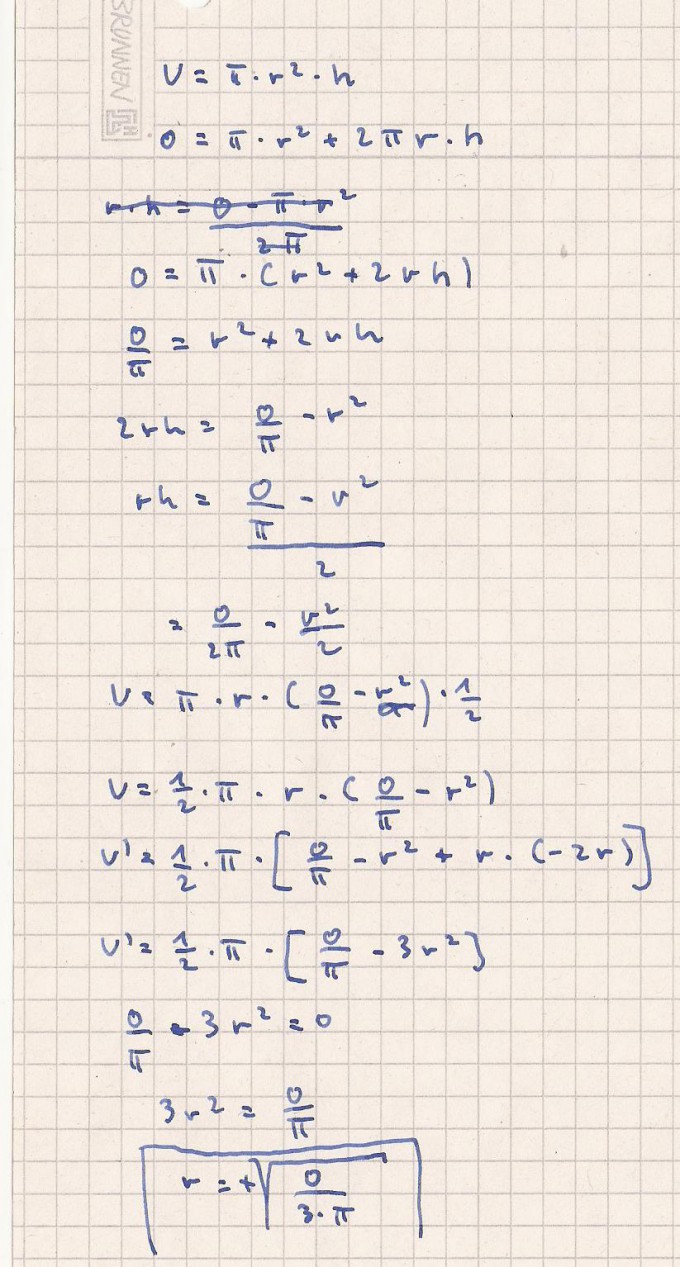 BRUNNEN
V = π · r² · h
O = π · r² + 2 π r · h
r · h = (O - π · r²) / (2 π)
O = π · (r² + 2 r h)
O/π = r² + 2 r h
2 r h = O/π - r²
r h = (O/π - r²) / 2
= O/(2π) - r²/2
V = π · r · (O/π - r²) · 1/2
V = 1/2 · π · r · (O/π - r²)
V' = 1/2 · π · [O/π - r² + r · (-2r)]
V' = 1/2 · π · [O/π - 3r²]
O/π - 3r² = 0
3r² = O/π
r = +√(O/(3·π))